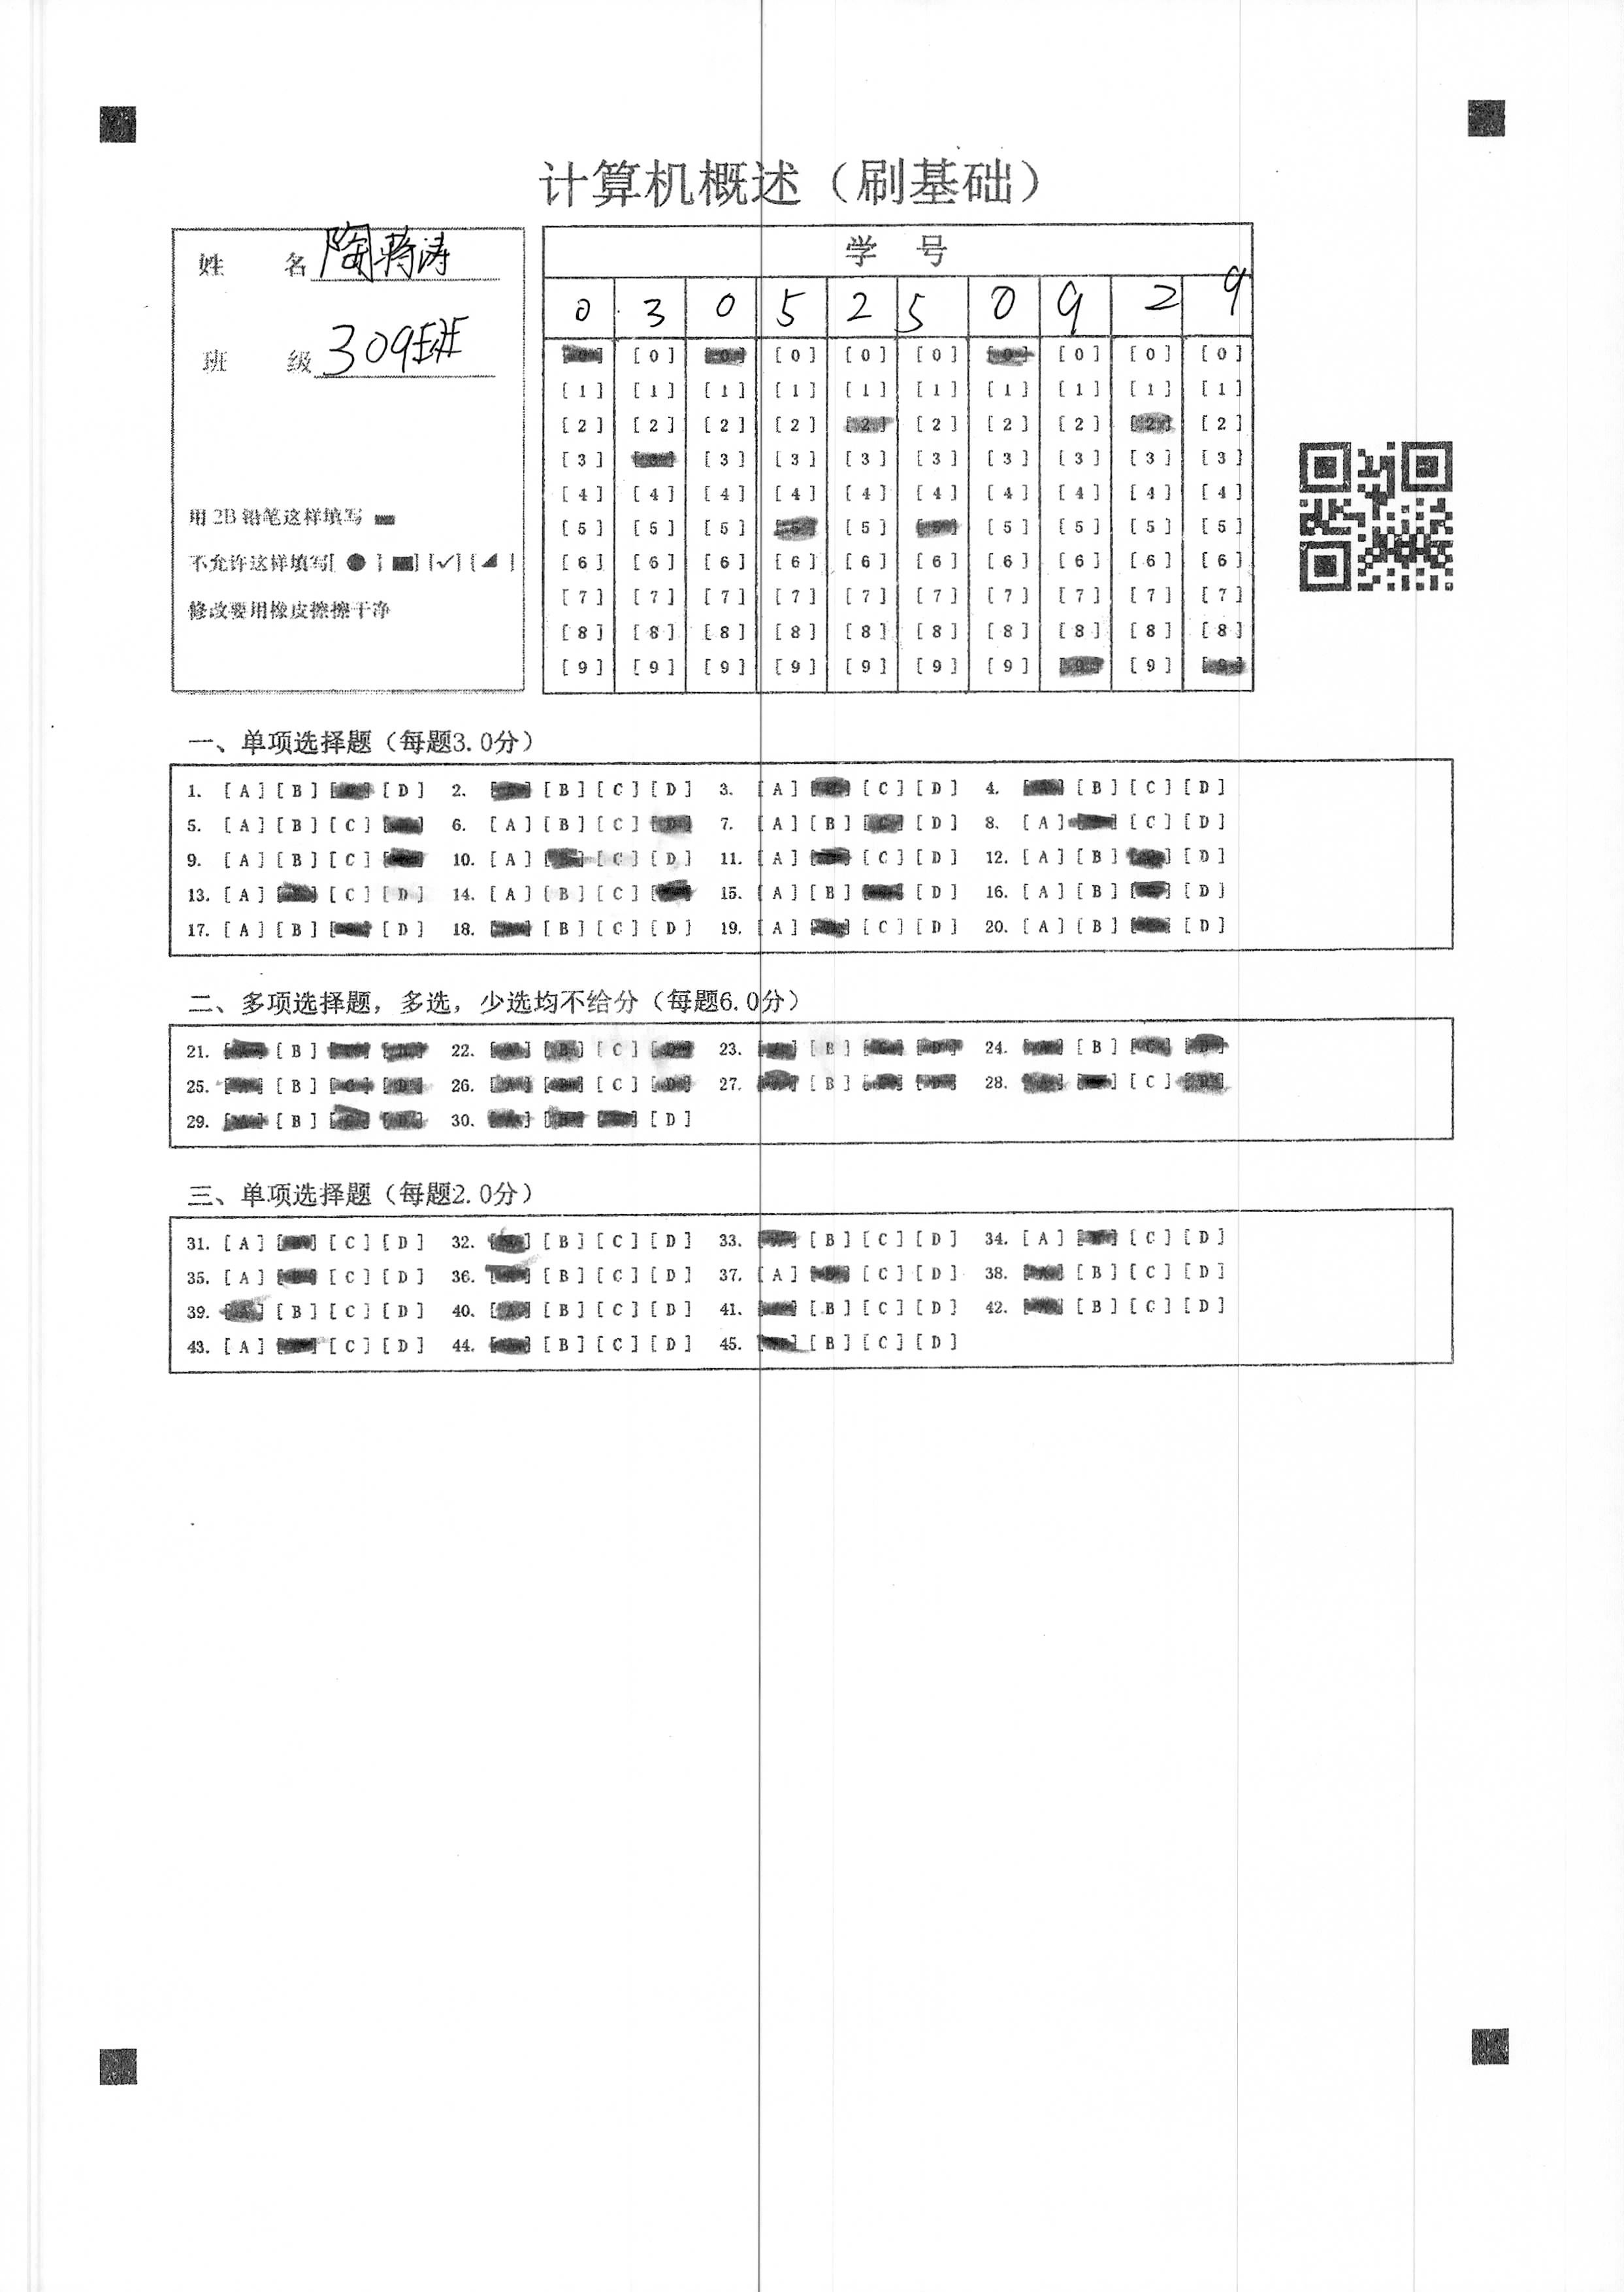 计算机概述（刷基础）
姓 名 陶蒋涛
班 级 309班
用 2B 铅笔这样填写
不允许这样填写[ ● ] [■] [✓] [◢ ]
修改要用橡皮擦擦干净
学 号
0 3 0 5 2 5 0 9 2 9
[0] [0] [0] [0] [0] [0] [0] [0] [0] [0]
[1] [1] [1] [1] [1] [1] [1] [1] [1] [1]
[2] [2] [2] [2] [2] [2] [2] [2] [2] [2]
[3] [3] [3] [3] [3] [3] [3] [3] [3]
[4] [4] [4] [4] [4] [4] [4] [4] [4] [4]
[5] [5] [5] [5] [5] [5] [5] [5] [5] [5]
[6] [6] [6] [6] [6] [6] [6] [6] [6] [6]
[7] [7] [7] [7] [7] [7] [7] [7] [7] [7]
[8] [8] [8] [8] [8] [8] [8] [8] [8] [8]
[9] [9] [9] [9] [9] [9] [9] [9] [9] [9]
一、单项选择题（每题3.0分）
1. [A] [B] [D] 2. [B] [C] [D] 3. [A] [C] [D] 4. [B] [C] [D]
5. [A] [B] [C] 6. [A] [B] [C] [D] 7. [A] [B] [C] [D] 8. [A] [C] [D]
9. [A] [B] [C] 10. [A] [C] [D] 11. [A] [C] [D] 12. [A] [B] [D]
13. [A] [C] [D] 14. [A] [B] [C] 15. [A] [B] [D] 16. [A] [B] [D]
17. [A] [B] [D] 18. [B] [C] [D] 19. [A] [C] [D] 20. [A] [B] [D]
二、多项选择题，多选，少选均不给分（每题6.0分）
21. [B] 22. [C] 23. [B] 24. [B]
25. [B] 26. [C] 27. [B] 28. [C]
29. [B] 30. [D]
三、单项选择题（每题2.0分）
31. [A] [C] [D] 32. [B] [C] [D] 33. [B] [C] [D] 34. [A] [C] [D]
35. [A] [C] [D] 36. [B] [C] [D] 37. [A] [C] [D] 38. [B] [C] [D]
39. [A] [B] [C] [D] 40. [A] [B] [C] [D] 41. [B] [C] [D] 42. [B] [C] [D]
43. [A] [C] [D] 44. [B] [C] [D] 45. [B] [C] [D]